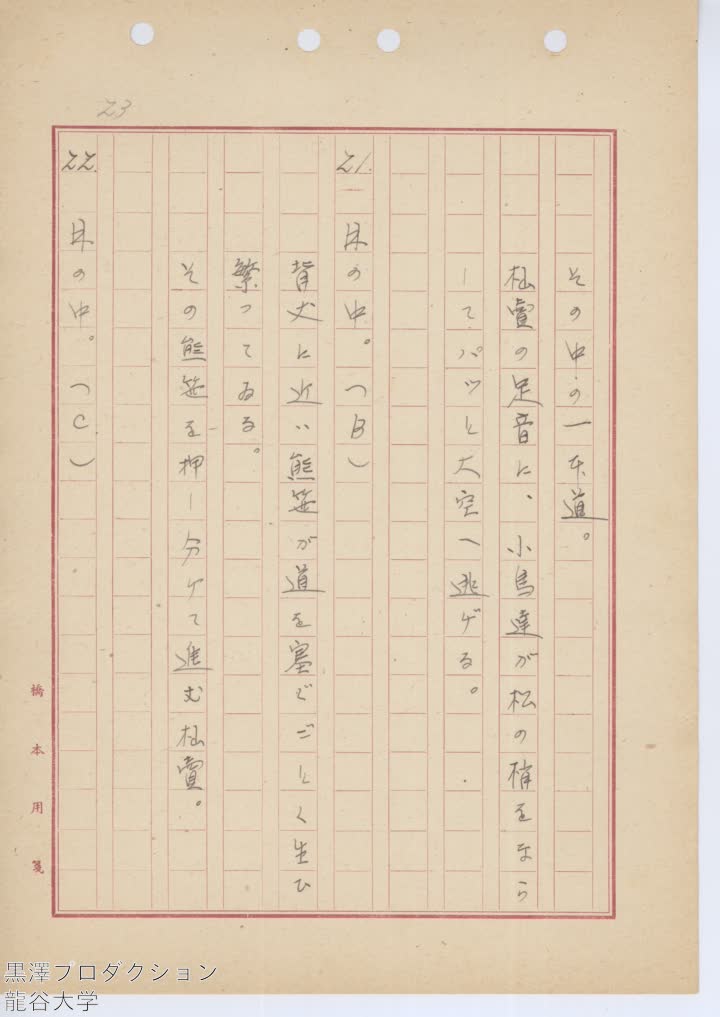 23
その中の一本道。
杣賣の足音に、小鳥達が松の梢をなら
してパッと大空へ逃げる。
21. 林の中。(B)
背丈に近い熊笹が道を塞ぐごとく生ひ
繁ってゐる。
その熊笹を押し分けて進む杣賣。
22. 林の中。(C)
橋本用箋
黒澤プロダクション
龍谷大学